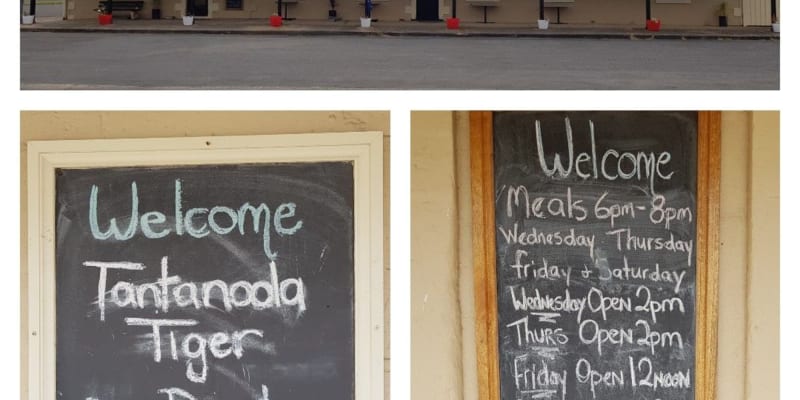 Welcome
Tantanoola
Tiger
Welcome
Meals 6pm-8pm
Wednesday Thursday
friday + Saturday
Wednesday Open 2pm
Thurs Open 2pm
Friday Open 12noon